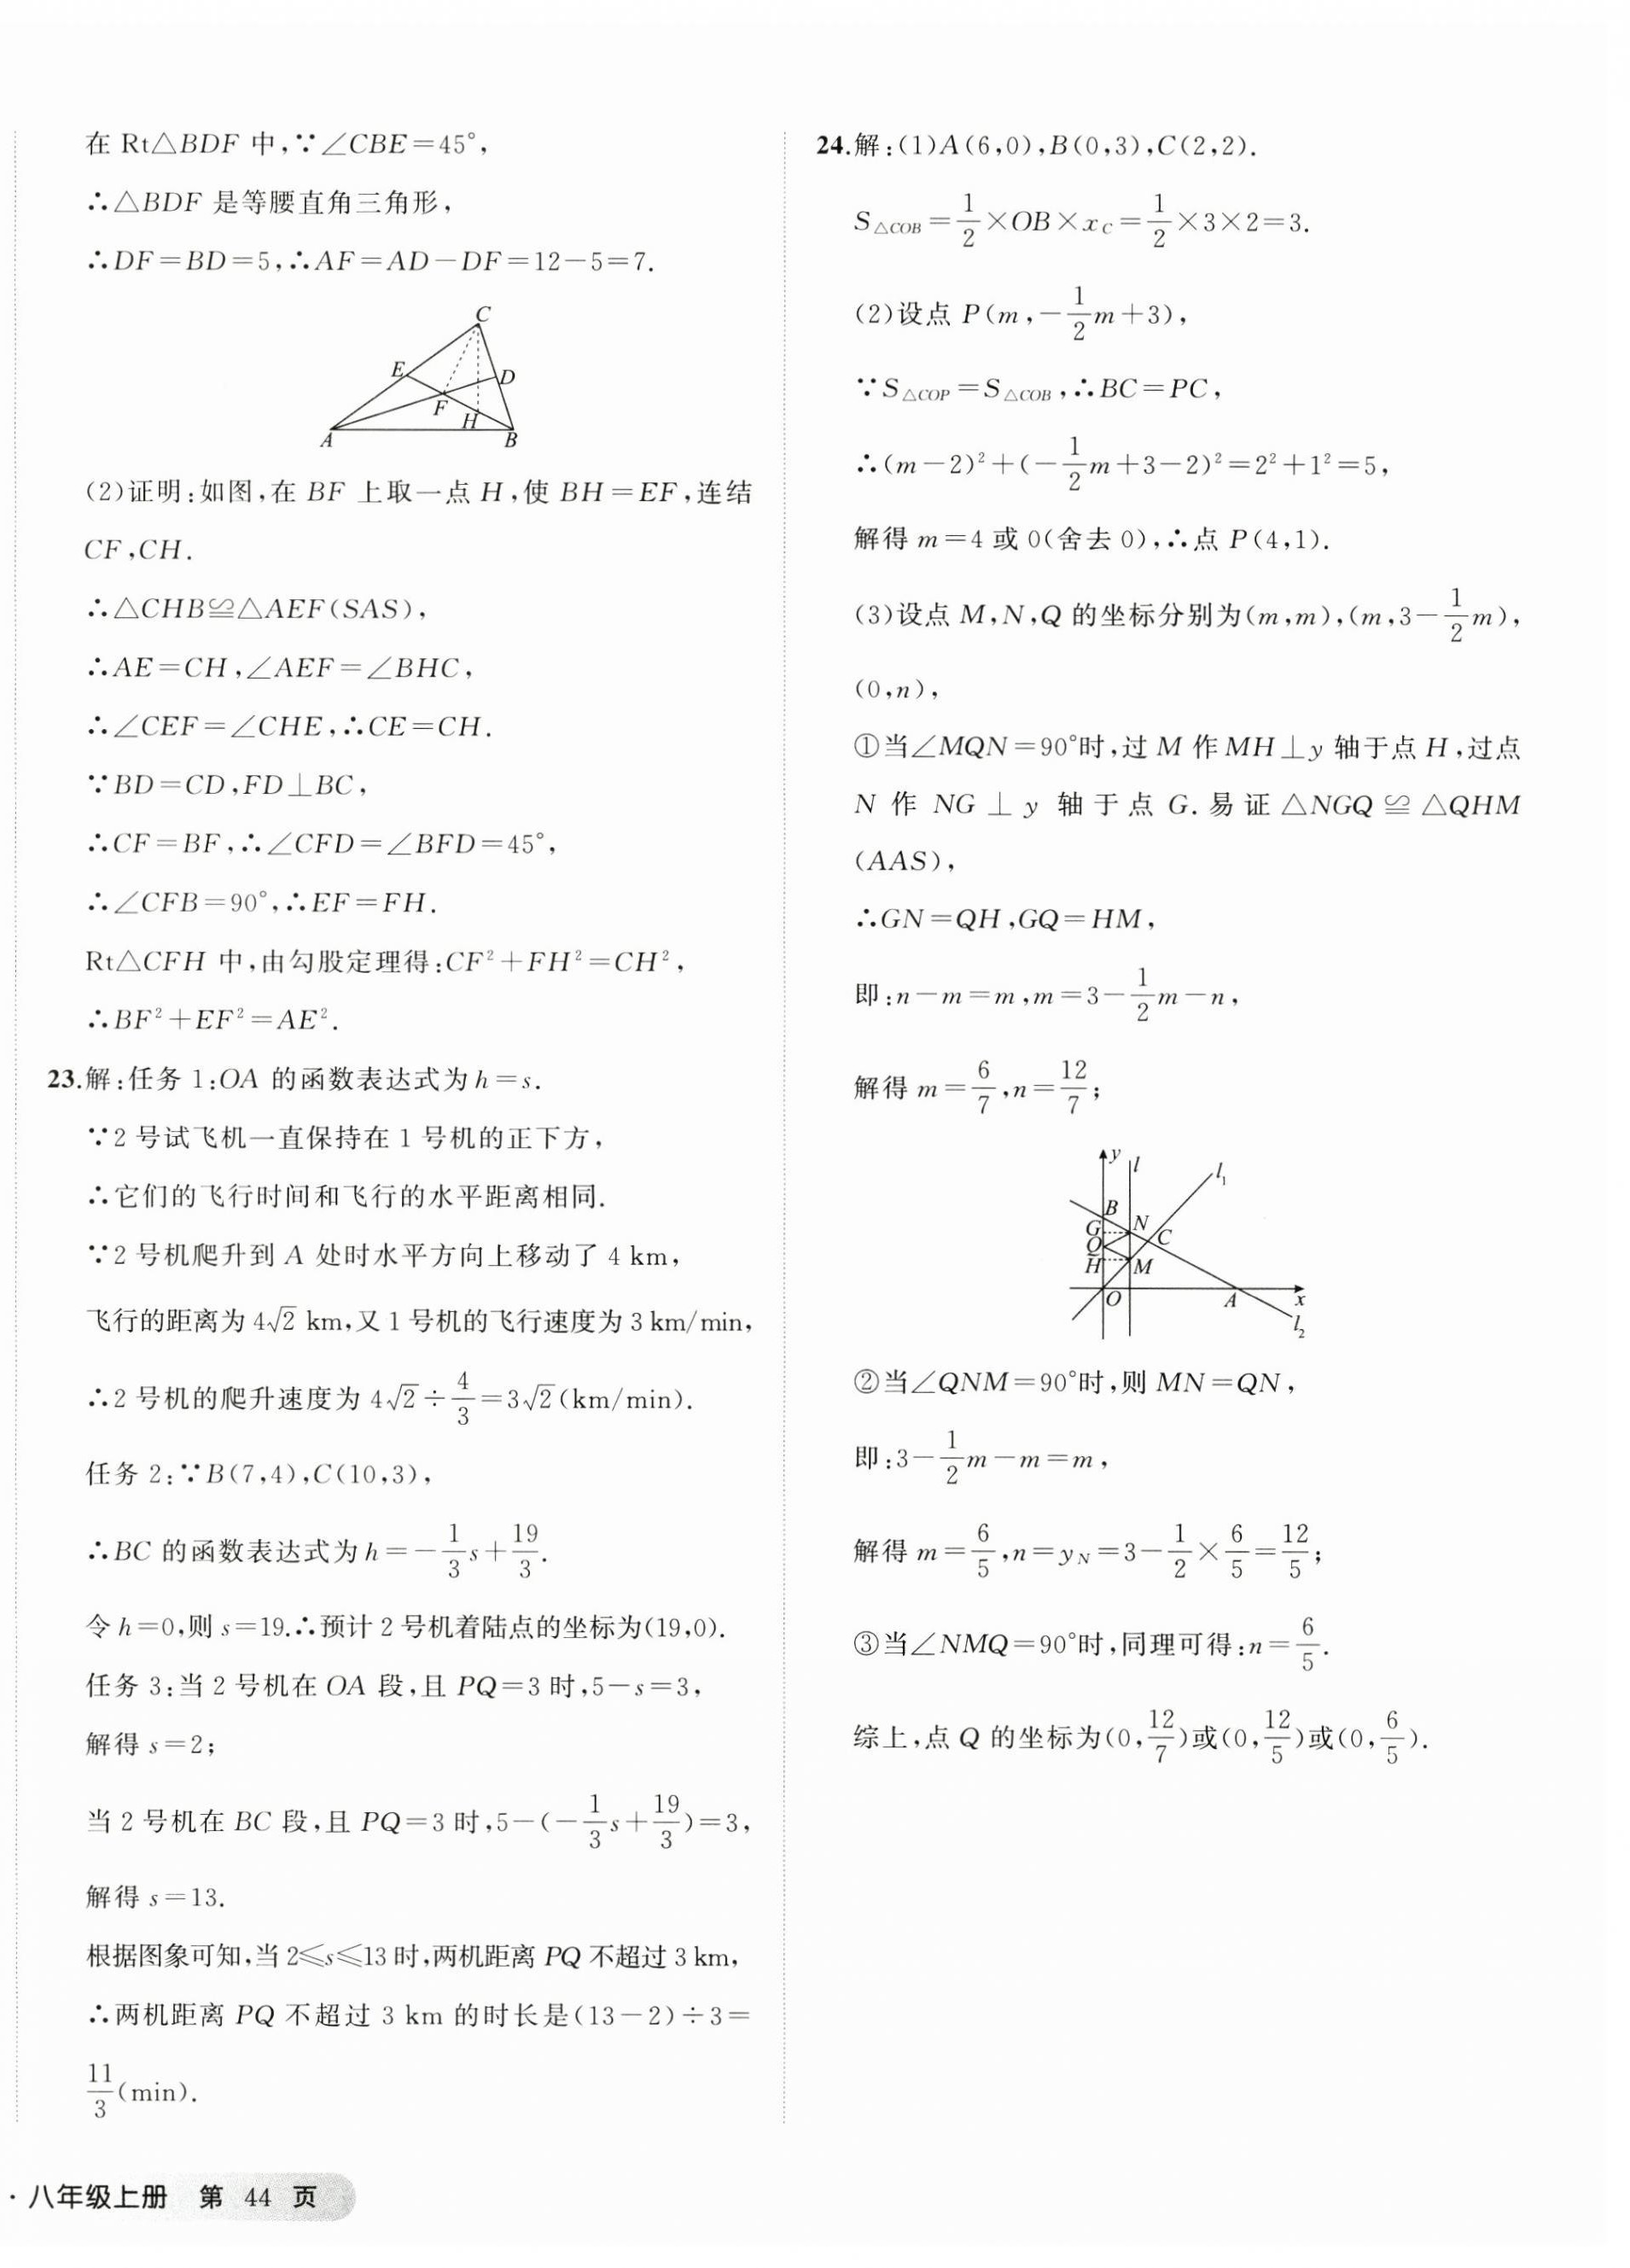 在 Rt△BDF 中,∵∠CBE=45°,
∴△BDF 是等腰直角三角形,
∴DF=BD=5,∴AF=AD-DF=12-5=7.
C
E
D
F
H
A
B
(2)证明:如图,在 BF 上取一点 H,使 BH=EF,连结
CF,CH.
∴△CHB≌△AEF(SAS),
∴AE=CH,∠AEF=∠BHC,
∴∠CEF=∠CHE,∴CE=CH.
∵BD=CD,FD⊥BC,
∴CF=BF,∴∠CFD=∠BFD=45°,
∴∠CFB=90°,∴EF=FH.
Rt△CFH 中,由勾股定理得:CF²+FH²=CH²,
∴BF²+EF²=AE².
23.解:任务 1:OA 的函数表达式为 h=s.
∵2 号试飞机一直保持在 1 号机的正下方,
∴它们的飞行时间和飞行的水平距离相同.
∵2 号机爬升到 A 处时水平方向上移动了 4 km,
飞行的距离为 4√2 km,又 1 号机的飞行速度为 3 km/min,
∴2 号机的爬升速度为 4√2÷4/3=3√2(km/min).
任务 2:∵B(7,4),C(10,3),
∴BC 的函数表达式为 h=-1/3s+19/3.
令 h=0,则 s=19.∴预计 2 号机着陆点的坐标为(19,0).
任务 3:当 2 号机在 OA 段,且 PQ=3 时,5-s=3,
解得 s=2;
当 2 号机在 BC 段,且 PQ=3 时,5-(-1/3s+19/3)=3,
解得 s=13.
根据图象可知,当 2≤s≤13 时,两机距离 PQ 不超过 3 km,
∴两机距离 PQ 不超过 3 km 的时长是(13-2)÷3=
11/3(min).
24.解:(1)A(6,0),B(0,3),C(2,2).
S△COB=1/2×OB×xC=1/2×3×2=3.
(2)设点 P(m,-1/2m+3),
∵S△COP=S△COB,∴BC=PC,
∴(m-2)²+(-1/2m+3-2)²=2²+1²=5,
解得 m=4 或 0(舍去 0),∴点 P(4,1).
(3)设点 M,N,Q 的坐标分别为(m,m),(m,3-1/2m),
(0,n),
①当∠MQN=90°时,过 M 作 MH⊥y 轴于点 H,过点
N 作 NG⊥y 轴于点 G.易证△NGQ≌△QHM
(AAS),
∴GN=QH,GQ=HM,
即:n-m=m,m=3-1/2m-n,
解得 m=6/7,n=12/7;
y
l
l₁
B
G
N
Q
C
H
M
O
A
x
l₂
②当∠QNM=90°时,则 MN=QN,
即:3-1/2m-m=m,
解得 m=6/5,n=yN=3-1/2×6/5=12/5;
③当∠NMQ=90°时,同理可得:n=6/5.
综上,点 Q 的坐标为(0,12/7)或(0,12/5)或(0,6/5).
· 八年级上册 第 44 页